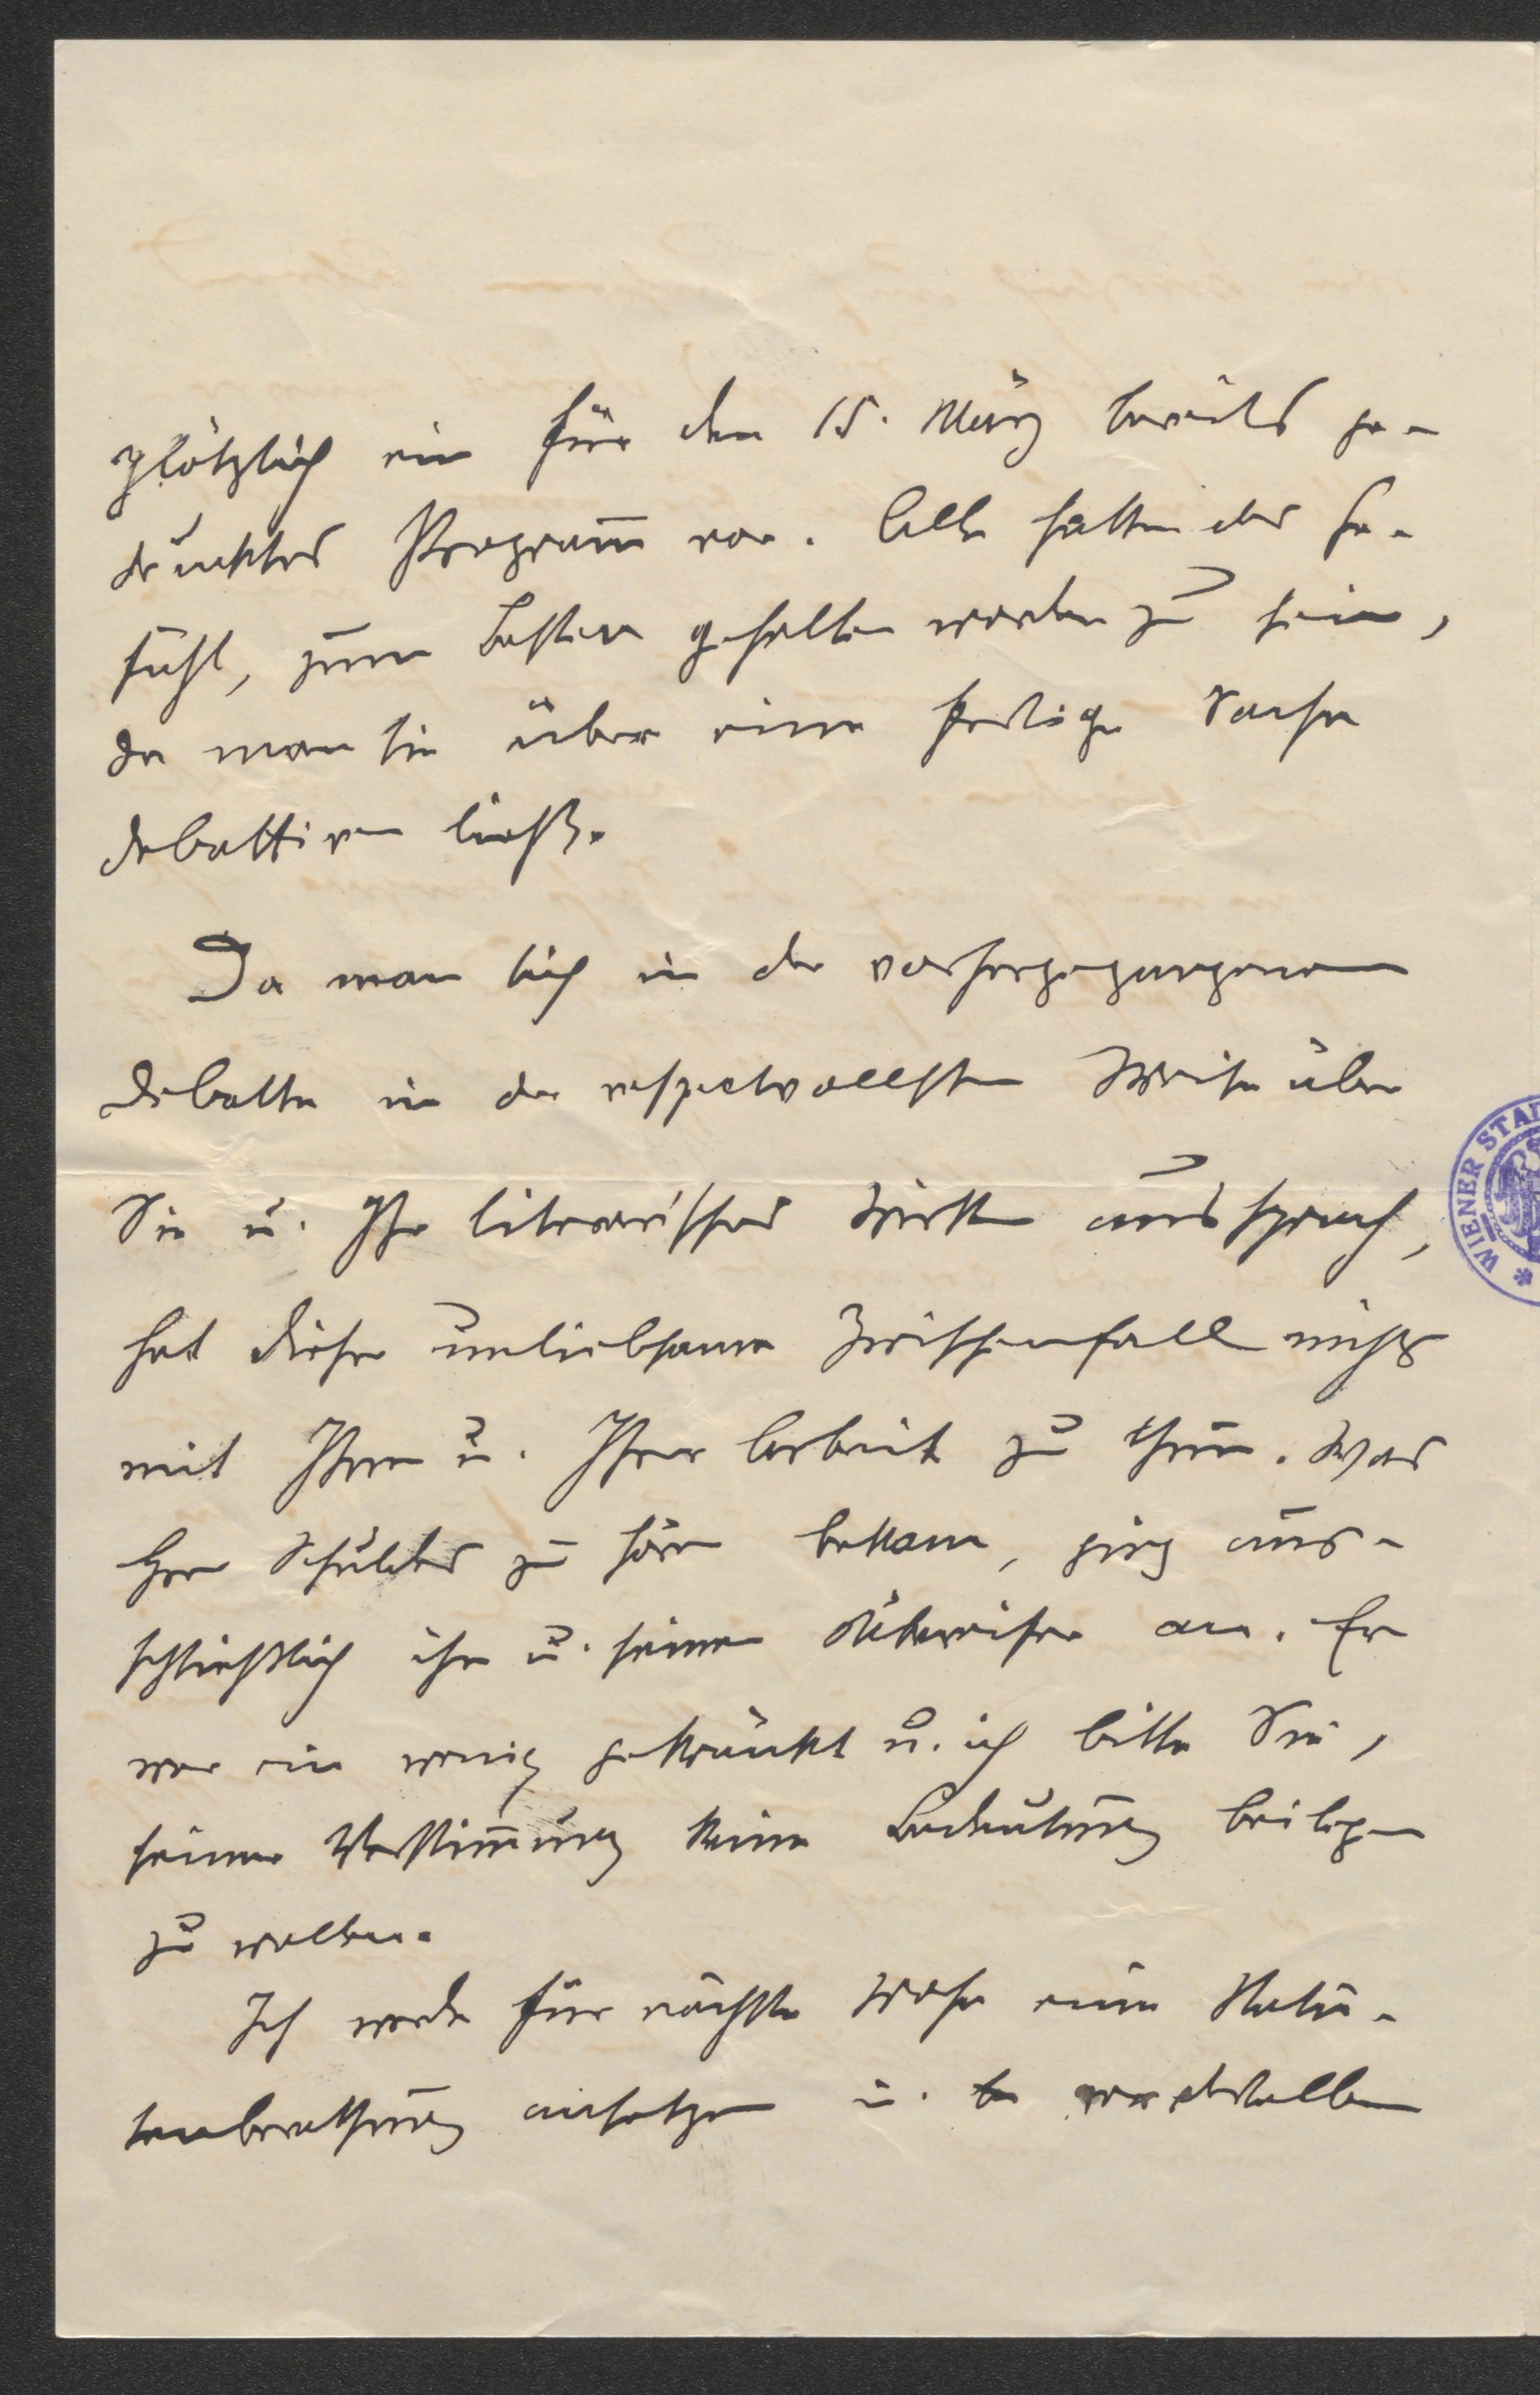 plötzlich ein für den 15. März bereits ge-
drucktes Program̅ vor. Alle hatten das Ge-
fühl, zum Besten gehalten worden zu sein,
da man sie über eine fertige Sache
debattiren ließ.
Da man sich in der vorhergegangenen
Debatte in der respectvollsten Weise über
Sie u. Ihr literarisches Wirken aussprach,
hat dieser unliebsame Zwischenfall nichts
mit Ihnen u. Ihrer Arbeit zu thun. Was
Herr Schulder zu hören bekam, ging aus-
schließlich ihn u. seine an. Er
war ein wenig gekränkt u. ich bitte Sie,
seiner Verstim̅ung keine Bedeutung beilegen
zu wollen.
Ich werde für nächste Woche eine Statu-
tenberathung ansetzen u.
WIENER STA